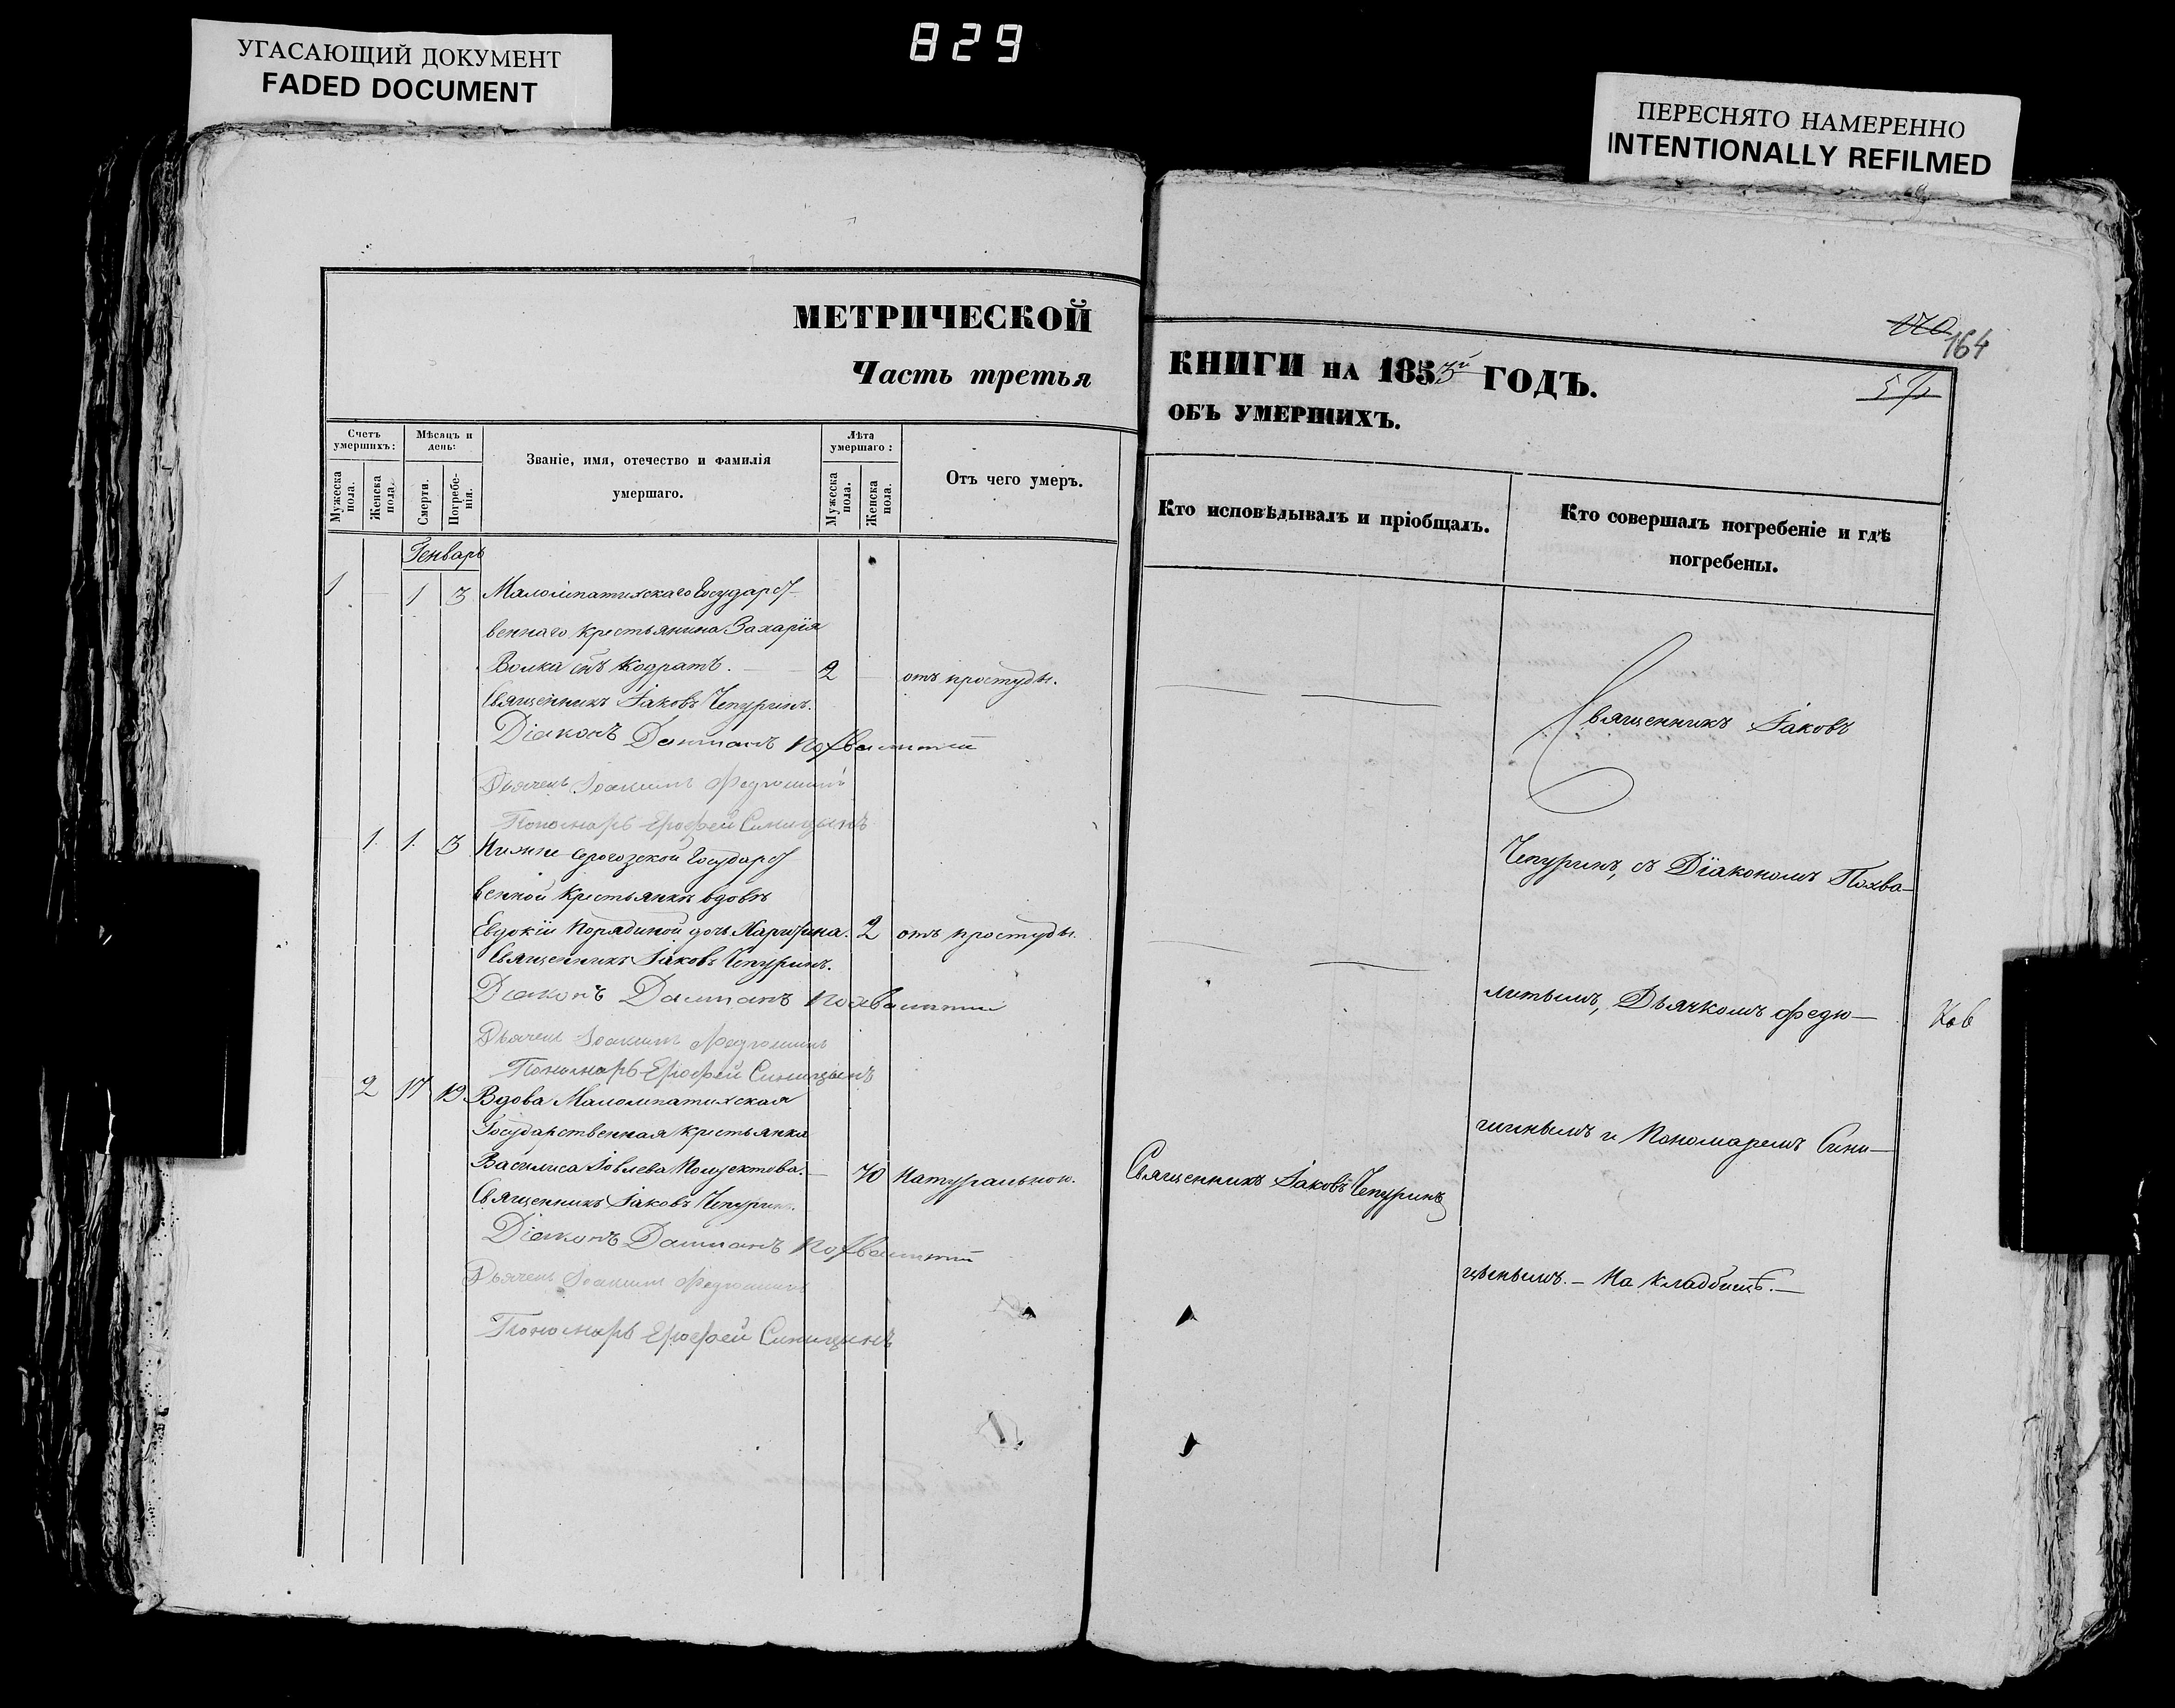 829
УГАСАЮЩИЙ ДОКУМЕНТ
FADED DOCUMENT
ПЕРЕСНЯТО НАМЕРЕННО
INTENTIONALLY REFILMED
164
МЕТРИЧЕСКОЙ
Часть третья
КНИГИ НА 1853й ГОДЪ.
ОБЪ УМЕРШИХЪ.
Счетъ умершихъ:
Мужеска пола.
Женска пола.
Мѣсяцъ и день:
Смерти.
Погребенія.
Званіе, имя, отечество и фамилія
умершаго.
Лѣта умершаго:
Мужеска пола.
Женска пола.
Отъ чего умеръ.
Кто исповѣдывалъ и пріобщалъ.
Кто совершалъ погребеніе и гдѣ
погребены.
Генварь
1 — 1 3 Малолепатихскаго Государст-
веннаго крестьянина Захарія
Волка снъ Кодратъ. — 2 отъ простуды.
Священникъ Іаковъ Чепуринъ.
Діаконъ Даміанъ Похвалитый
Дьячекъ Іоакимъ Федюшинъ
Пономарь Ерофей Синицынъ
1 1 3 Нижне Серогозской Государст
венной Крестьянкѣ вдовѣ
Евдокіи Порядиной дочь Харитина. 2 отъ простуды.
Священникъ Іаковъ Чепуринъ.
Діаконъ Даміанъ Похвалитый
Дьячекъ Іоакимъ Федюшинъ
Пономарь Ерофей Синицынъ
2 17 19 Вдова Малолепатихская
Государственная крестьянка
Василиса Іовлева 70 Натуральною.
Священникъ Іаковъ Чепуринъ.
Діаконъ Даміанъ Похвалитый
Дьячекъ Іоакимъ Федюшинъ
Пономарь Ерофей Синицынъ
Священникъ Іаковъ Чепуринъ
Священникъ Іаковъ
Чепуринъ, съ Діакономъ Похва—
литымъ, Дьячкомъ Федю—
шинымъ и Пономаремъ Сини—
цынымъ. — На кладбищѣ. —